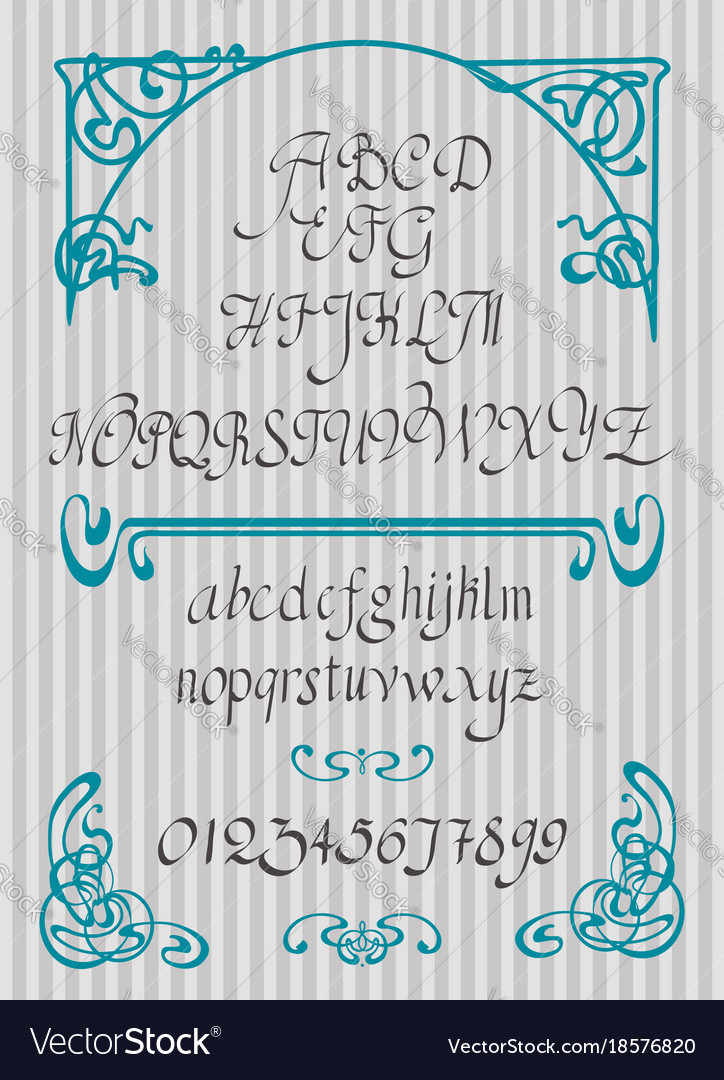 ABCD
EFG
HIJKLM
NOPQRSTUVWXYZ
abcdefghijklm
nopqrstuvwxyz
012345677899
VectorStock®
VectorStock.com/18576820